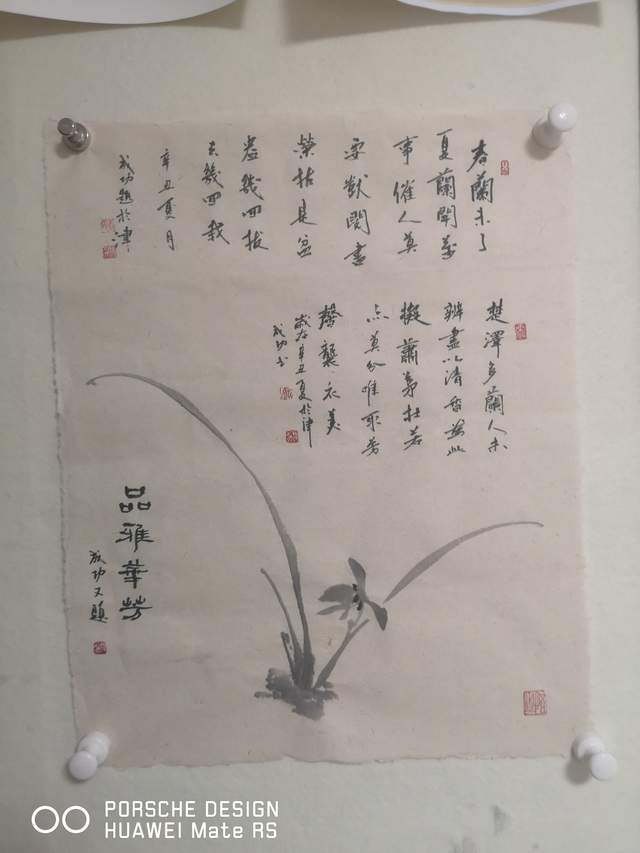 春蘭未了
夏蘭開萬
事催人莫
要獃閱盡
榮枯是盆
盎幾回拔
去幾回栽
辛丑夏月
成功題於津
楚澤多蘭人未
辨盡以清香為比
擬蕭茅杜若
亦莫分唯取芳
馨襲衣美
歲在辛丑夏於津
成功書
品雅華芳
成功又題
PORSCHE DESIGN
HUAWEI Mate RS